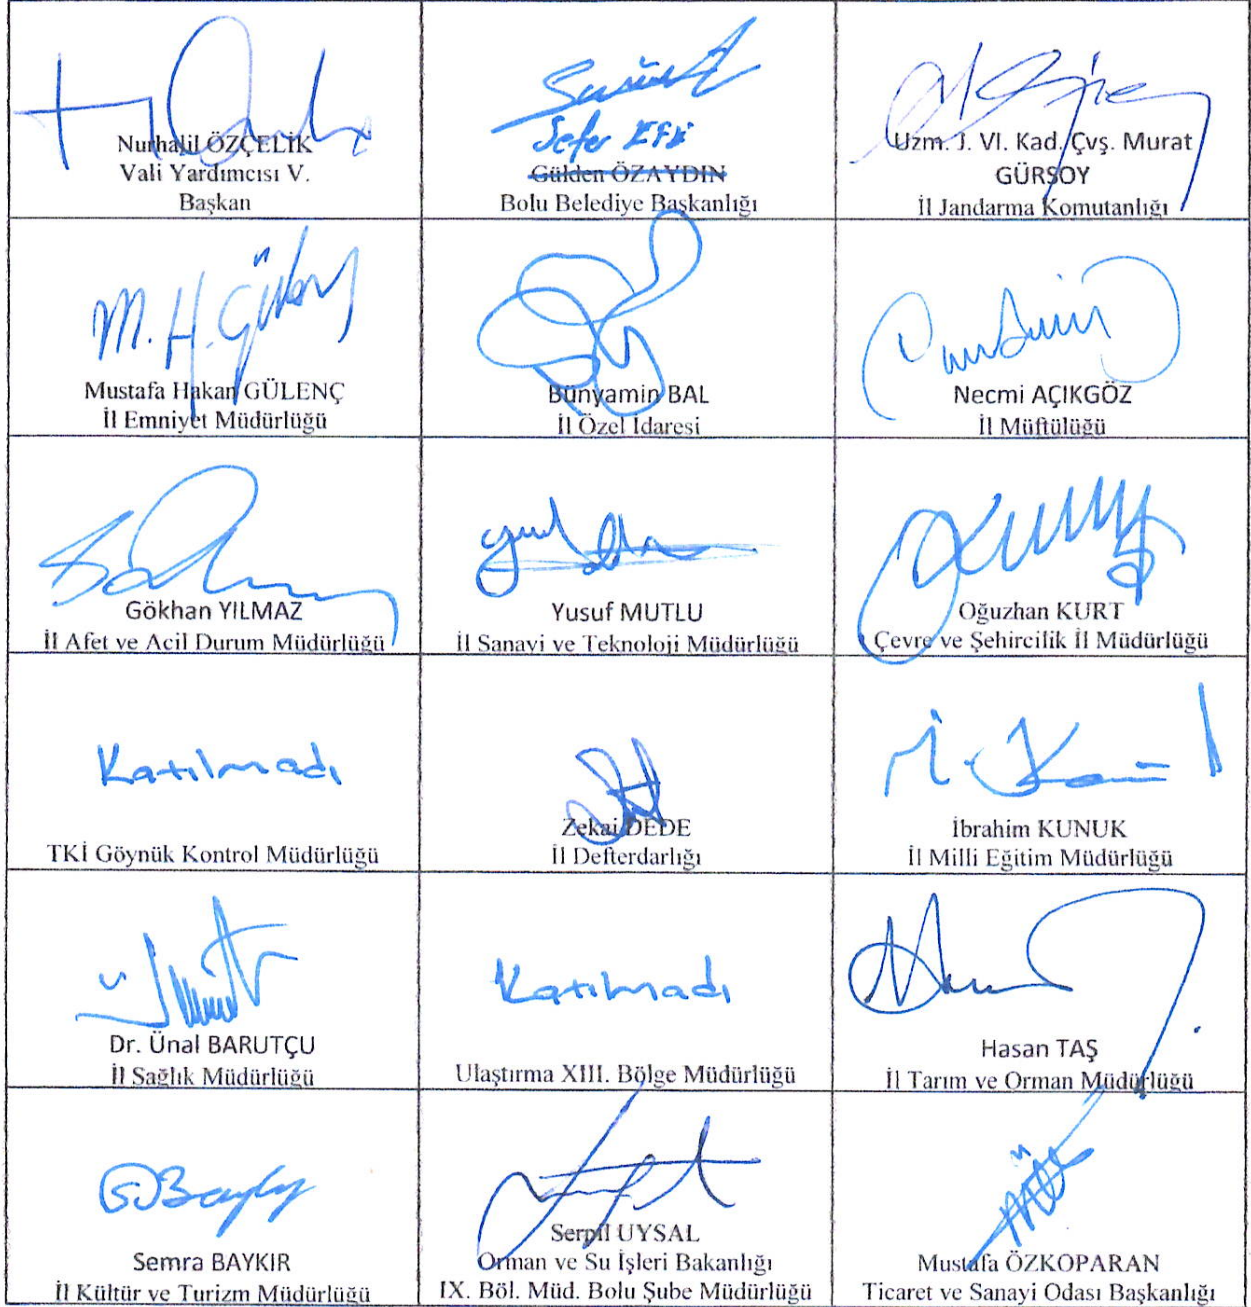 Nurhalil ÖZÇELİK
Vali Yardımcısı V.
Başkan
Sefer EFE
Gülden ÖZAYDIN
Bolu Belediye Başkanlığı
Uzm. J. Vl. Kad. Çvş. Murat
GÜRSOY
İl Jandarma Komutanlığı
M. H. Gülenç
Mustafa Hakan GÜLENÇ
İl Emniyet Müdürlüğü
Bünyamin BAL
İl Özel İdaresi
Necmi AÇIKGÖZ
İl Müftülüğü
Gökhan YILMAZ
İl Afet ve Acil Durum Müdürlüğü
Yusuf MUTLU
İl Sanayi ve Teknoloji Müdürlüğü
Oğuzhan KURT
Çevre ve Şehircilik İl Müdürlüğü
Katılmadı
TKİ Göynük Kontrol Müdürlüğü
Zekai DEDE
İl Defterdarlığı
İbrahim KUNUK
İl Milli Eğitim Müdürlüğü
Dr. Ünal BARUTÇU
İl Sağlık Müdürlüğü
Katılmadı
Ulaştırma XIII. Bölge Müdürlüğü
Hasan TAŞ
İl Tarım ve Orman Müdürlüğü
Semra BAYKIR
İl Kültür ve Turizm Müdürlüğü
Serpil UYSAL
Orman ve Su İşleri Bakanlığı
IX. Böl. Müd. Bolu Şube Müdürlüğü
Mustafa ÖZKOPARAN
Ticaret ve Sanayi Odası Başkanlığı